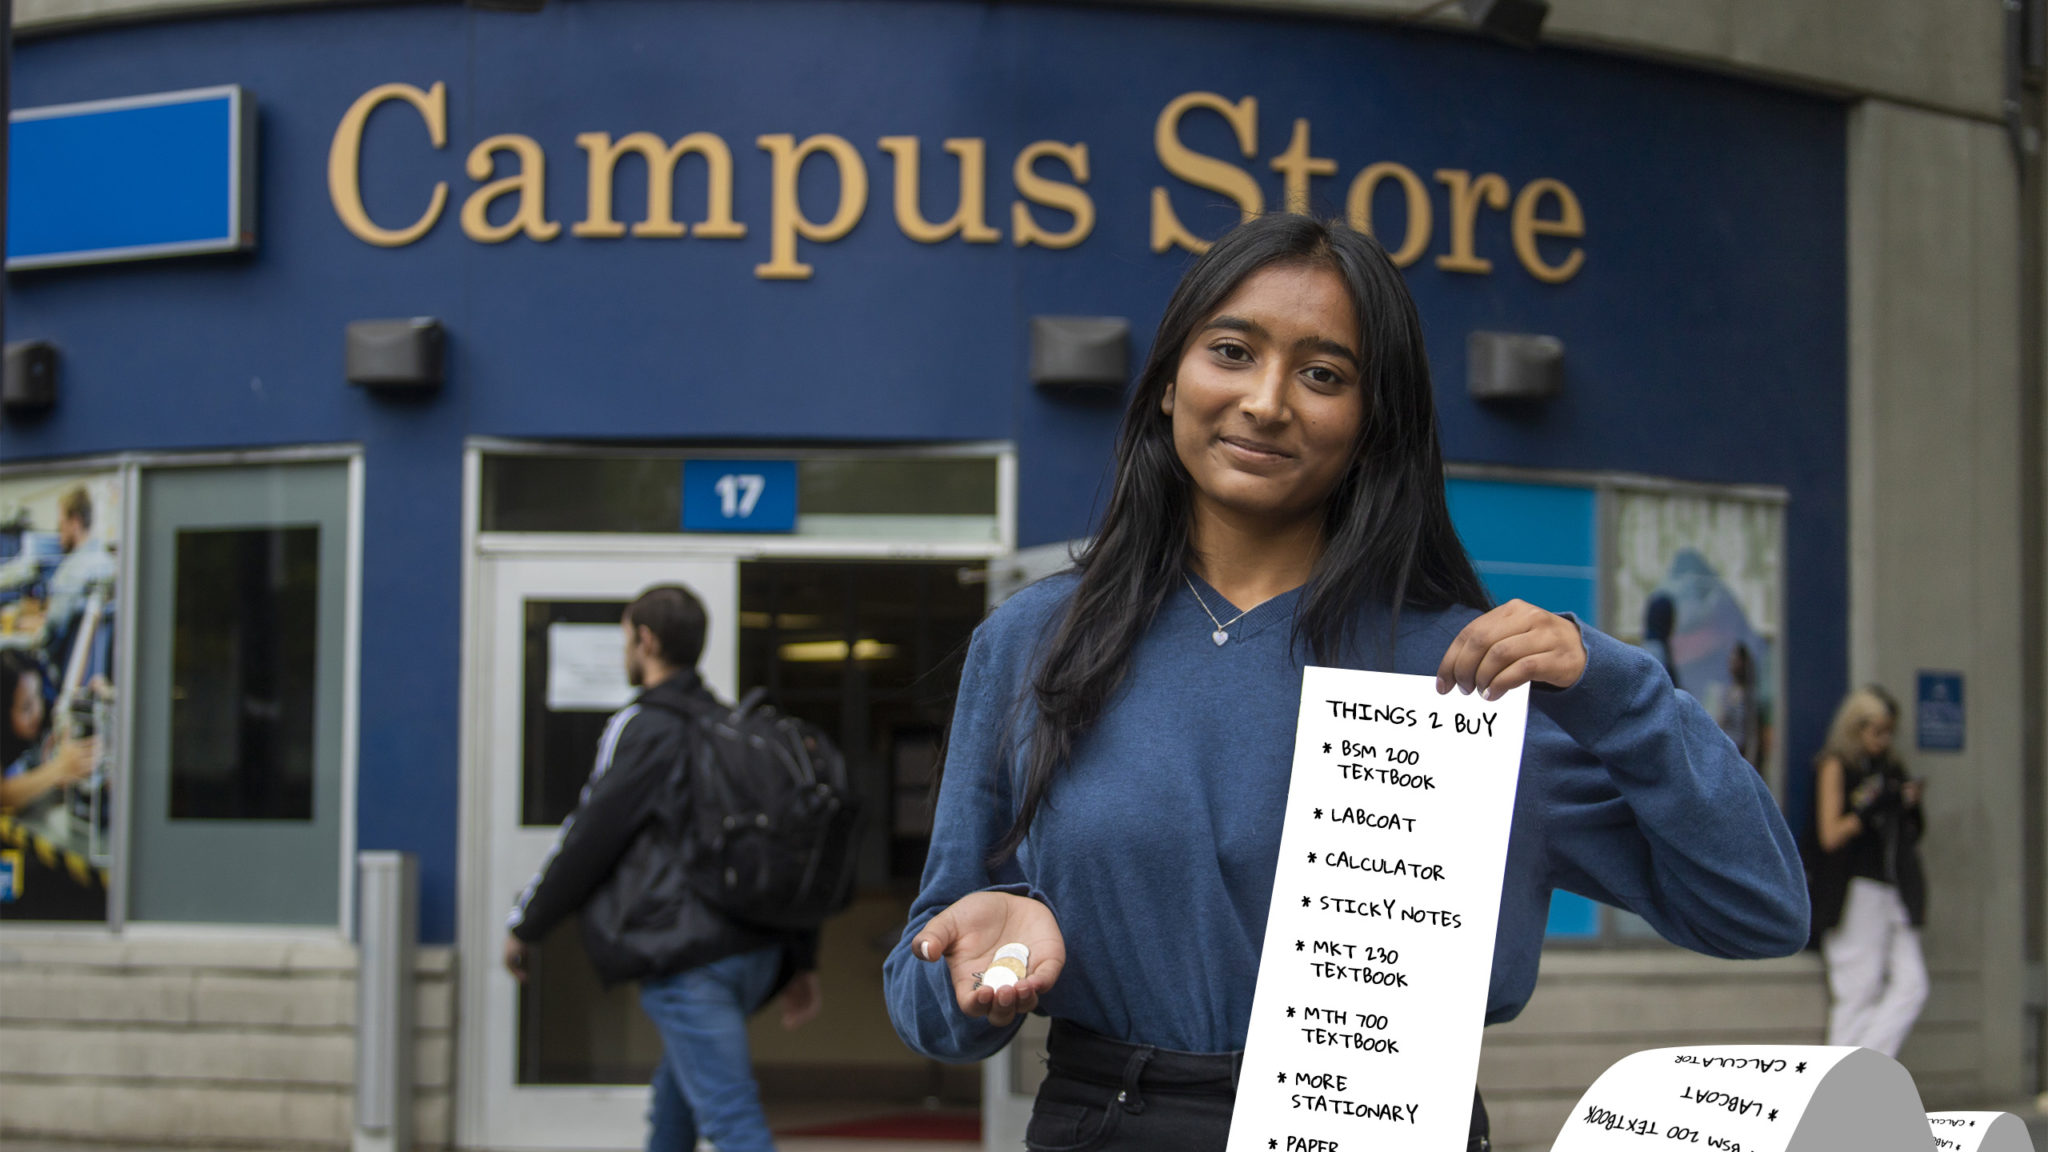 Campus Store
17
THINGS 2 BUY
* BSM 200
TEXTBOOK
* LABCOAT
* CALCULATOR
* STICKY NOTES
* MKT 230
TEXTBOOK
* MTH 700
TEXTBOOK
* MORE
STATIONARY
* PAPER
* CALCULATOR
* LABCOAT
* BSM 200 TEXTBOOK